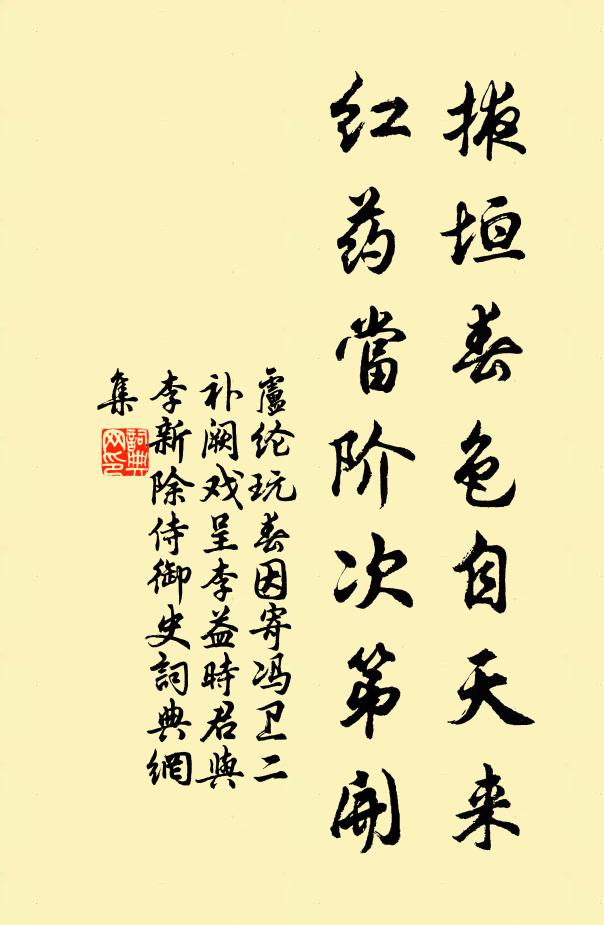 掖垣春色自天来
红药當阶次第開
盧纶玩春因寄冯卫二
补阙戏呈李益時君與
李新除侍御史詞典網
集
詞典
网印